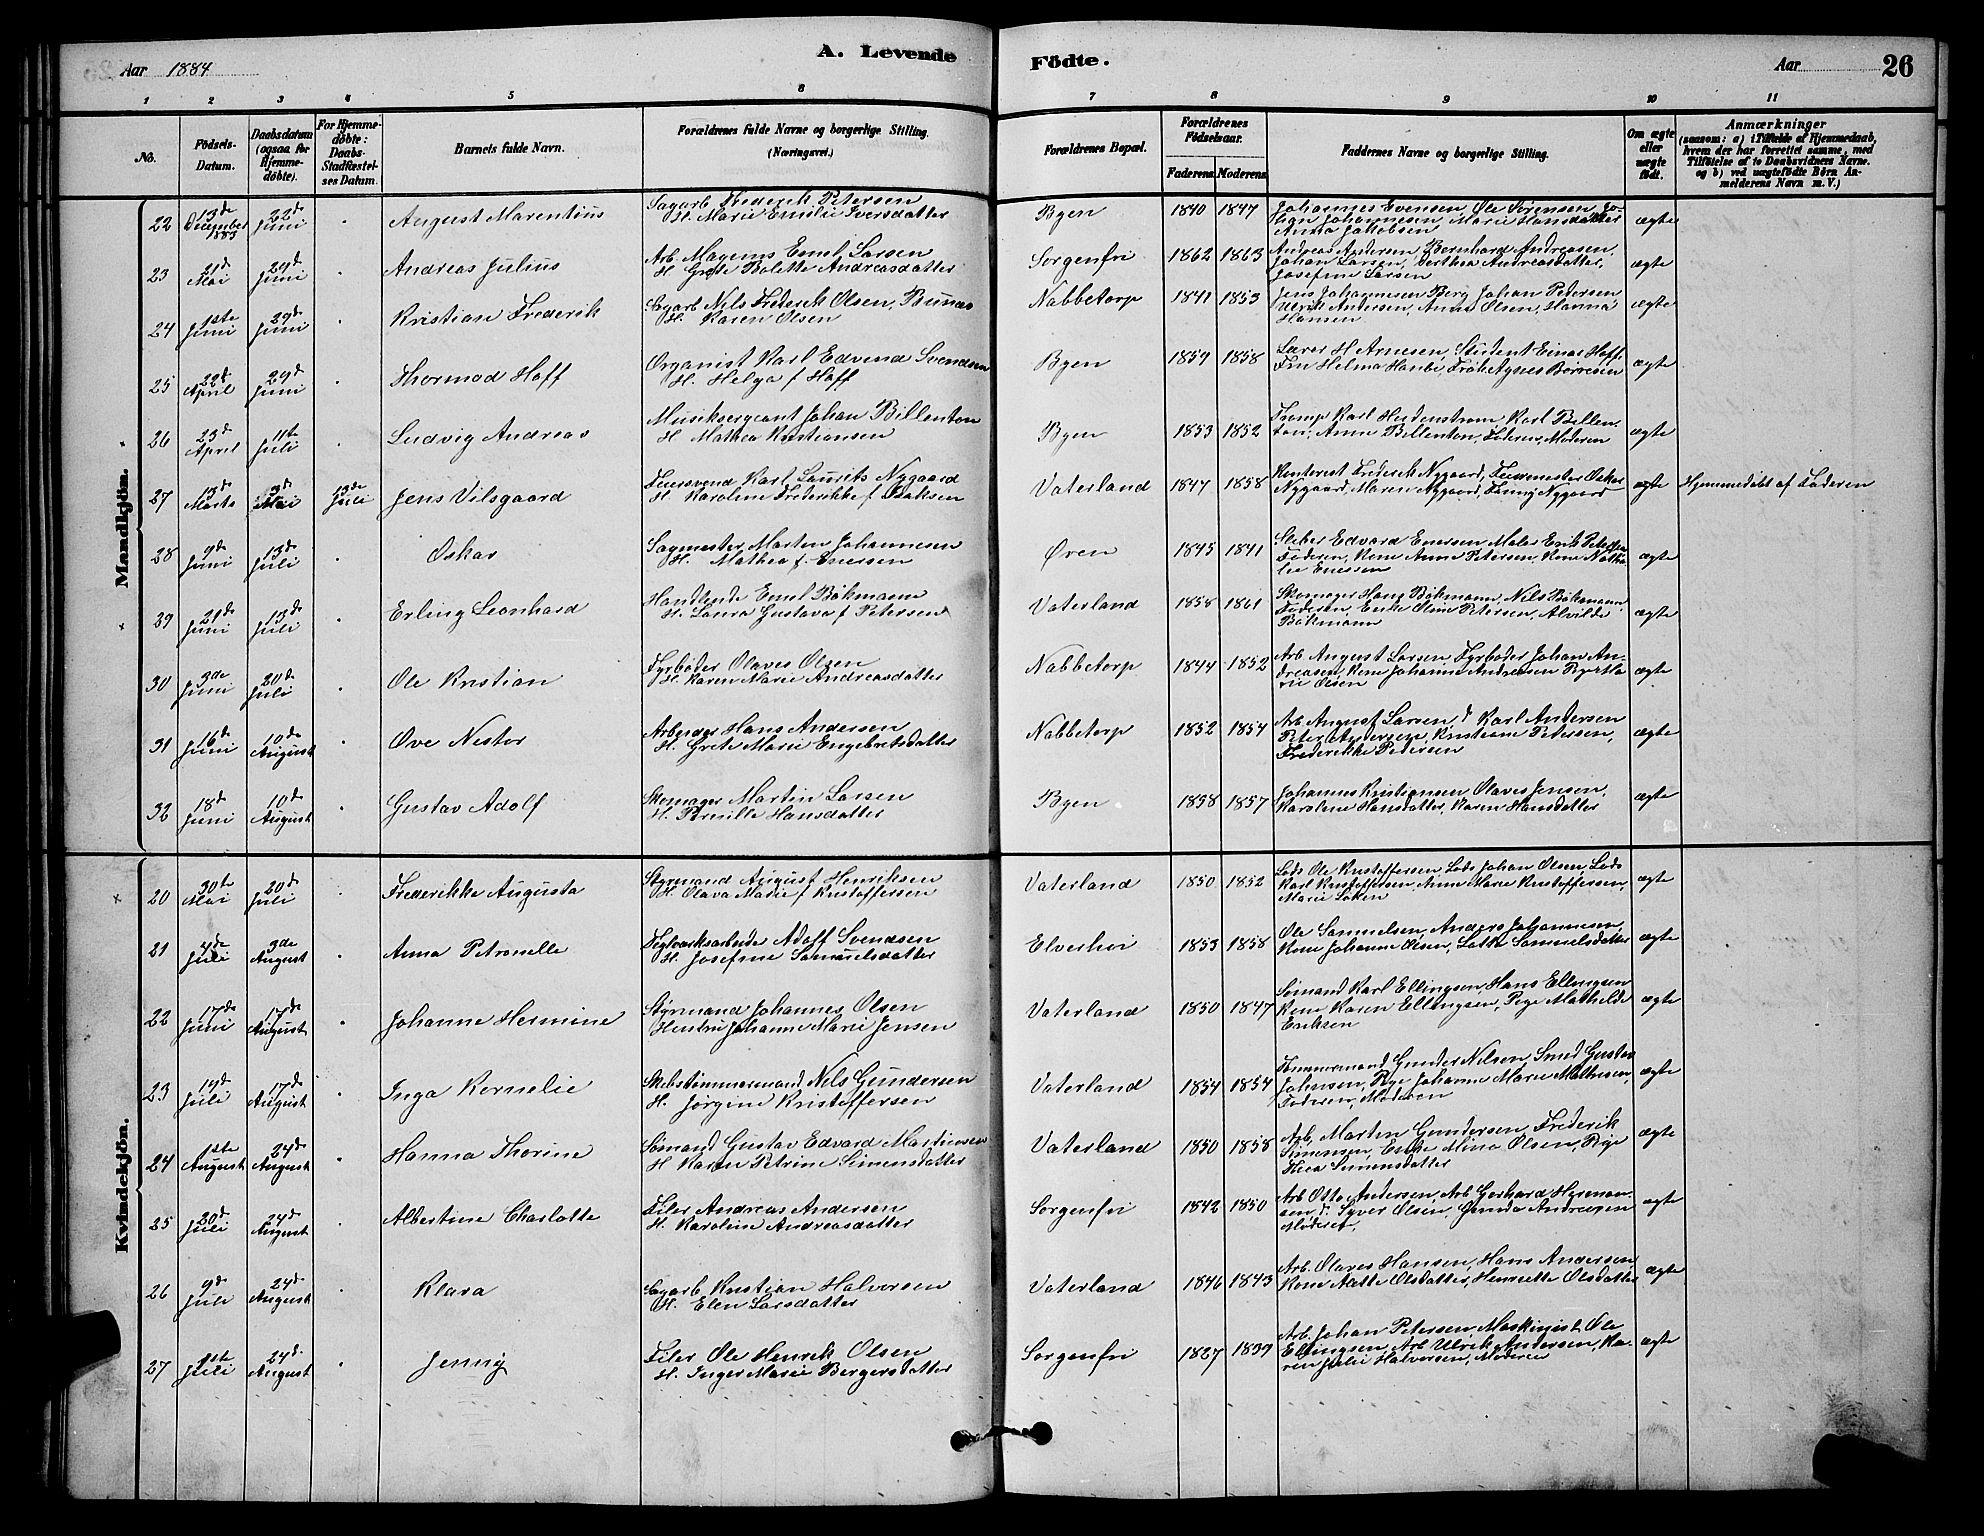 Aar 1884
A. Levende
Födte.
Aar
26
1 2 3 4 5 6 7 8 9 10 11
No.
Födsels-Datum.
Daabsdatum (ogsaa for Hjemme-döbte).
For Hjemme-döbte: Daabs-Stadfæstel-ses Datum.
Barnets fulde Navn.
Forældrenes fulde Navne og borgerlige Stilling. (Næringsvei.)
Forældrenes Bopæl.
Forældrenes Födselsaar.
Faderens. Moderens.
Faddernes Navne og borgerlige Stilling.
Om ægte eller uægte födt.
Anmærkninger
(saasom: a) i Tilfælde af Hjemmedaab, hvem der har forrettet samme, med Tilföielse af to Daabsvidners Navne. og b) ved uægtefödte Börn An-melderens Navn m. V.)
Mandkjön.
22 13de December 1883 22de Juni August Marentius Sagarb Frederik Petersen
H. Marie Emilie Iversdatter Byen 1840 1847 Johannes Evensen Ole Sørensen Jo-
han Johannesen Marie Hansdatter
Anna Jakobsen ægte
23 21de Mai 29de Juni Andreas Julius Arb. Magnus Emil Larsen
H. Grete Bolette Andreasdatter Sorgenfri 1862 1863 Andreas Andersen, Bernhard Andreasen,
Johan Larsen, Berthea Andreasdatter,
Josefine Larsen ægte
24 1ste Juni 29de Juni Kristian Frederik Sagarb Nils Frederik Olsen,
H. Karen Olsen Nabbetorp 1841 1853 Jens Johannesen Berg Johan Petersen
Ulrik Andersen, Anna Olsen, Hanna
Hansen ægte
25 22de April 29de Juni Thormod Hoff Organist Karl Edvend Svendsen
H. Helga f Hoff Byen 1859 1858 Lærer H Arnesen, Student Einar Hoff,
Fru Helma Hanbe, Frøk Agnes Børresen ægte
26 23de April 11te Juli Ludvig Andreas Musiksergeant Johan Billenton
H. Mathea Kristiansen Byen 1853 1852 Tromp Karl Hedenstrøm, Karl Billen-
ton, Anna Billenton, Faderen, Moderen ægte
27 13de Marts 3de Mai 13de Juli Jens Vilsgaard Feiersvend Karl Laurits Nygaard
H. Karoline Frederikke f Isaksen Vaterland 1847 1858 Kontorist Frederik Nygaard, Feiermester Oskar
Nygaard, Maren Nygaard, Fanny Nygaard ægte Hjemmedøbt af Faderen
28 9de Juni 13de Juli Oskar Sagmester Martin Johannesen
H. Mathea f. Enersen Øren 1845 1841 Sliber Edvard Enersen, Maler Erik Petersen
Faderen, Kone Anna Petersen, Kone Natha-
lie Enersen ægte
29 21de Juni 13de Juli Erling Leonhard Handlende Emil Bökmann
H. Laura Gustava f Petersen Vaterland 1858 1861 Skomager Hans Bökmann, Nils Bökmann,
Faderen, Enke Oline Petersen, Alvilde
Bökmann ægte
30 3de Juni 20de Juli Ole Kristian Fyrbøder Olaves Olsen
H. Karen Marie Andreasdatter Nabbetorp 1844 1852 Arb August Larsen, Fyrbøder Johan An-
dreasen, Kone Johanne Andreasen Pige Ma-
rie Olsen ægte
31 16de Juni 10de August Ove Nestor Arbeider Hans Andersen
H. Grete Marie Engebretsdatter Nabbetorp 1852 1854 Arb. August Larsen, d. Karl Andersen
Peter Andersen, Kristiane Petersen,
Frederikke Petersen ægte
32 18de Juni 10de August Gustav Adolf Skomager Martin Larsen
H. Pernille Hansdatter Byen 1858 1857 Johannes Kristiansen, Olaves Jensen,
Karoline Hansdatter, Karen Hansdatter ægte
Kvindekjön.
20 30te Mai 20de Juli Frederikke Augusta Styrmand August Henriksen
H. Olava Marie f Kristoffersen Vaterland 1850 1852 Lods Ole Kristoffersen, Lods Johan Olsen, Lods
Karl Kristoffersen, Anne Marie Kristoffersen,
Marie Løken ægte
21 4de Juli 3de August Anna Petronelle Teglværksarbeide Adolf Svendsen
H. Josefine Samuelsdatter Elverhøi 1853 1858 Ole Samuelsen, Anders Johannesen,
Kone Johanne Olsen, Lotte Samuelsdatter ægte
22 17de Juni 17de August Johanne Hermine Styrmand Johannes Olsen
Hustru Johanne Marie Jensen Vaterland 1850 1847 Sømand Karl Ellingsen, Hans Ellingsen
Kone Karen Ellingsen, Pige Mathilde
Eriksen ægte
23 19de Juli 17de August Inga Kornelie Skibstømmermand Nils Gundersen
H. Jørgine Kristoffersen Vaterland 1854 1854 Tømmermand Gunder Nilsen, Smed Gustav
Johansen, Pige Johanne Marie Mathisen,
Faderen, Moderen ægte
24 1ste August 24de August Hanna Thorine Sømand Gustav Edvard Martinsen
H Karen Petrine Simensdatter Vaterland 1850 1858 Arb. Martin Gundersen, Frederik
Simensen, Enke Mina Olsen, Pige
Thea Simensdatter ægte
25 20de Juli 24de August Albertine Charlotte Filer Andreas Andersen
H. Karoline Andreasdatter Sorgenfri 1842 1850 Arb Otto Andersen, Arb Gerhard Herman-
sen, d. Syver Olsen, Gunda Andreasen
Moderen, ægte
26 9de Juli 24de August Klara Sagarb Kristian Halvorsen
H. Elen Larsdatter Vaterland 1846 1843 Arb. Olaves Hansen, Hans Andersen,
Kone Nette Olsdatter, Henriette Olsdatter ægte
27 1ste Juli 24de August Jenny Filer Ole Henrik Olsen
H. Inger Marie Bergersdatter Sorgenfri 1837 1839 Arb. Johan Petersen, Maskinist Ole
Ellingsen, Arb Ulrik Andersen, Ka-
ren Julie Halvorsen, Moderen ægte